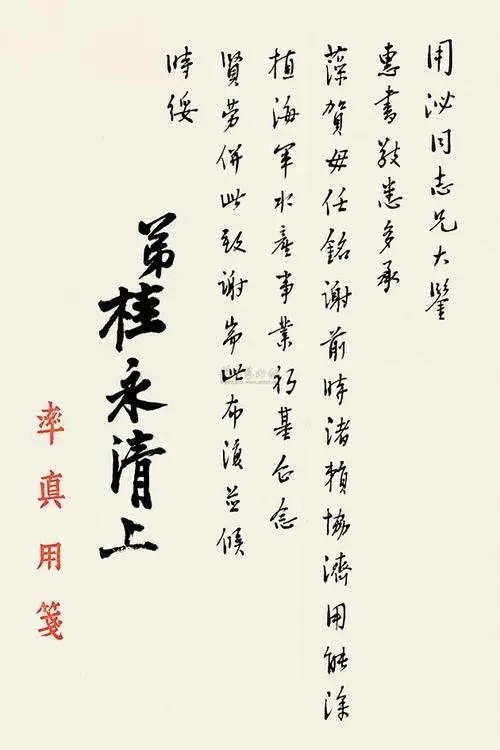 用泌同志兄大鑒
惠書敬悉多承
藻賀毋任銘謝前時諸賴協濟用能深
植海軍水產事業初基企念
賢勞併此致謝耑此布復並候
時綏
弟桂永清上
率真用箋